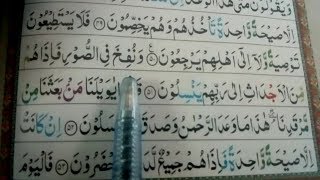 وَيَقُوْلُوْنَ مَتٰى هٰذَا الْوَعْدُ
اِلَّا صَيْحَةً وَّاحِدَةً تَاْخُذُهُمْ وَهُمْ يَخِصِّمُوْنَ ۝۴۹ فَلَا يَسْتَطِيْعُوْنَ
تَوْصِيَةً وَّلَاۤ اِلٰٓى اَهْلِهِمْ يَرْجِعُوْنَ ۝۵۰ وَنُفِخَ فِي الصُّوْرِ فَاِذَا هُمْ
مِّنَ الْاَجْدَاثِ اِلٰى رَبِّهِمْ يَنْسِلُوْنَ ۝۵۱ يٰوَيْلَنَا مَنْۢ بَعَثَنَا مِنْ
مَّرْقَدِنَا هٰذَا مَا وَعَدَ الرَّحْمٰنُ وَصَدَقَ الْمُرْسَلُوْنَ ۝۵۲ اِنْ كَانَتْ
اِلَّا صَيْحَةً وَّاحِدَةً فَاِذَا هُمْ جَمِيْعٌ لَّدَيْنَا مُحْضَرُوْنَ ۝۵۳ فَالْيَوْمَ